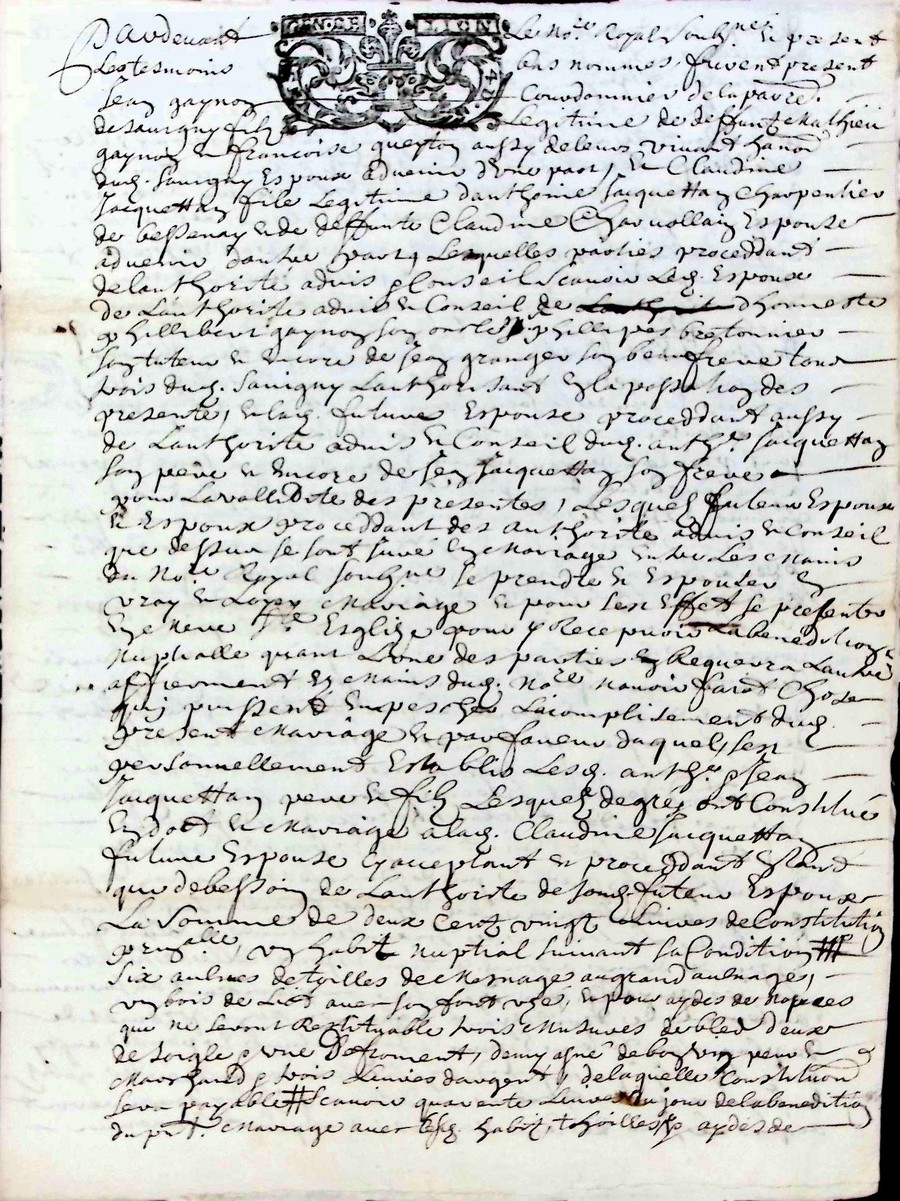 GN.DE LION
Pardevant Le No.re Royal soubz.né Et present
Les tesmoins bas nommes furent present
Jean gaynon Courdonnier de la parre.
de Savigny filz Legitime de deffunt Mathieu
gaynon et francoise aussy de leur vivant
dud. Savigny Espoux advenir d'une part, Et Claudine
Jacquettan fille Legitime d'anthoine Jacquettan Charpentier
de bessenay et de deffunte Claudine Espouse
advenir d'autre part Lesquelles parties proceddant
de lauthorité advis & Conseil scavoir Led. Espoux
de Lauthorité advis et Conseil de d'honneste
phillibert gaynon son oncle phillipes bretonnier
son tuteur et Encore de Jean granger son beau frere tous
trois dud. Savigny Lauthorisant en la passation des
presente, et lad. future Espouse proceddant aussy
de Lauthorité advis et Conseil dud. anth.e Jacquettan
son pere et Encore de Jean Jacquettan son frere
pour La vallidité des presentes, Lesquels futeur Espoux
et Espouse proceddant des authorité advis et Conseil
que dessus se sont juré en Mariage entre Les Mains
du No.re Royal soubz.né se prendre et Espouser En
vray et Loyal Mariage et pour cest Effet se presenter
En Mere S.te Esglize pour y Recepvoir La benediction
Nuptialle quant L'une des parties En Requerra Lautre
afirement Es Mains dud. No.re n'avoir fait Chose
qui puissent Empescher L'acomplisement dud.
present Mariage et par faveur daquel, sest
personnellement Establis Lesd. anth.e & Jean
Jacquettan pere et filz Lesquelz de gre ont Constitué
En dot et Mariage a lad. Claudine Jacquettan
future Espouse y acceptant et proceddant Estant
que de bessoin de Lauthorité de sond. futeur Espoux
La Somme de deux Cent vingt Livres de Constitution
un habit Nuptial suivant sa Condition
six aulnes de toilles de Mesnage au grand aulnage,
un bois de Lict avec son font uzé, et pour aydes de Nopces
qui ne seront Restituable trois Mesures de bled deux
de soigle & une De froment, demy asné de bon vin peur et
Marchand & trois Livres dargent, de laquelle Constitution
sera payable scavoir quarente Livres du jour de la benediction
du pnt. Mariage avec lesd. habit, thoilles & aydes de